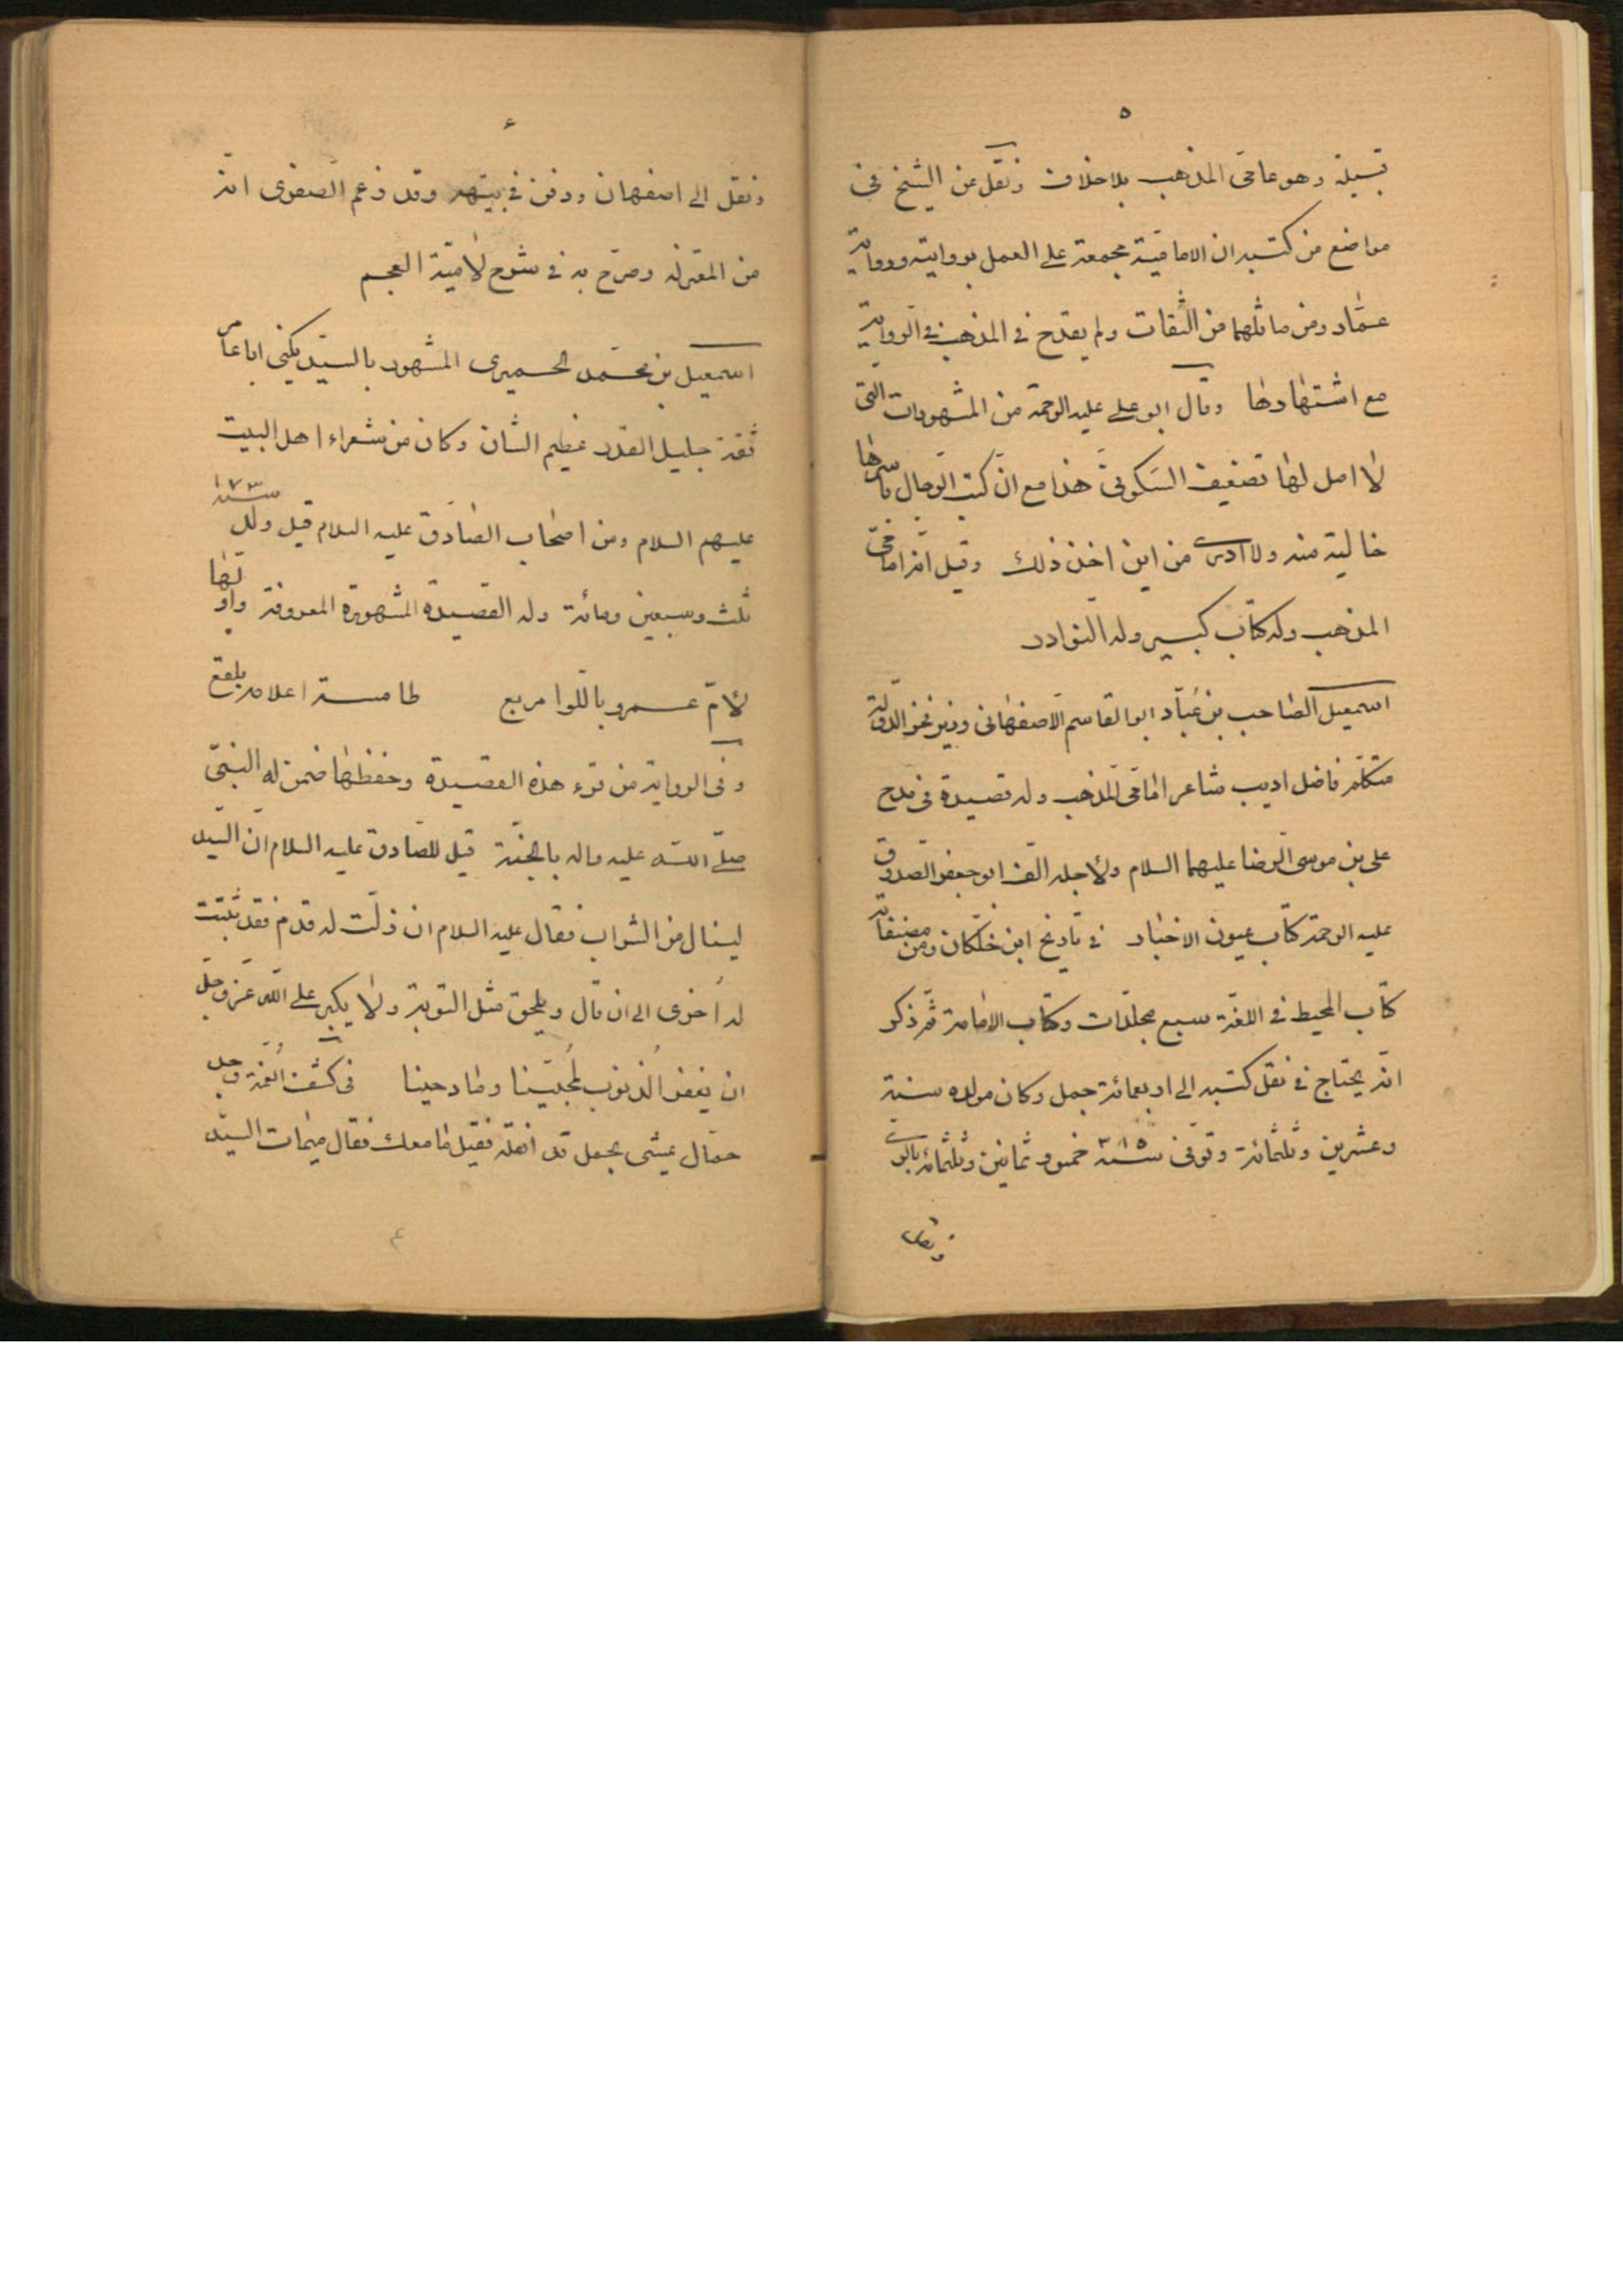 ٥
قبيلة وهو عامى المذهب بلا خلاف ونقل عن الشيخ فى
مواضع من كتبه ان الامامية مجمعة على العمل بروايته ورواية
عمّار ومن ماثلهما من الثقات ولم يقدح فى المذهب فى الرواية
مع اشتهارها وقال ابو على عليه الرحمة من المشهورات التى
لا اصل لها تضعيف السكونى هذا مع انّ كتب الرجال باسرها
خالية منه ولا ادرى من اين اخذ ذلك وقيل انه امامىّ
المذهب وله كتاب كبير وله النوادر
اسمعيل الصاحب بن عُبّاد ابوالقاسم الاصفهانى وزير فخر الدولة
متكلّم فاضل اديب شاعر امامى المذهب وله قصيدة فى مدح
على بن موسى الرضا عليهما السلام ولأجله الّف ابو جعفر الصدوق
عليه الرحمة كتاب عيون الاخبار فى تاريخ ابن خلّكان ومن مصنّفاته
كتاب المحيط فى اللغة سبع مجلّدات وكتاب الامامة ثمّ ذكر
انّه يحتاج فى نقل كتبه الى اربعمائة جمل وكان مولده سنة
وعشرين وثلثمائة وتوفى سنة ٣٨٥ خمس وثمانين وثلثمائة بالرى
ونقل
٦
ونقل الى اصفهان ودفن فى بيتهم وقد زعم الصفدى انّه
من المعتزلة وصرّح به فى شرح لامية العجم
اسمعيل بن محمّد الحميرى المشهور بالسيّد يكنى ابا عامر
ثقة جليل القدر عظيم الشان وكان من شعراء اهل البيت
عليهم السلام ومن اصحاب الصادق عليه السلام قيل ولد سنة ١٧٣
ثلث وسبعين ومائة وله القصيدة المشهورة المعروفة واوّلها
لأمّ عمرو باللوا مربع طامسة اعلامه بلقع
وفى الرواية من قرء هذه القصيدة وحفظها ضمن له النبىّ
صلّى اللّه عليه واله بالجنّة قيل للصّادق عليه السلام انّ السيّد
لينال من الشراب فقال عليه السلام ان زلّت له قدم فقد ثبتت
له اُخرى الى ان قال ويلحق مثل التوبة ولا يكبر على اللّه عزّ وجلّ
ان يغفر الذنوب لمُحبّينا ومادحينا فى كشف الغمّة وجد
حمّال يمشى بحمل قد اثقله فقيل ما معك فقال ميمات السيّد